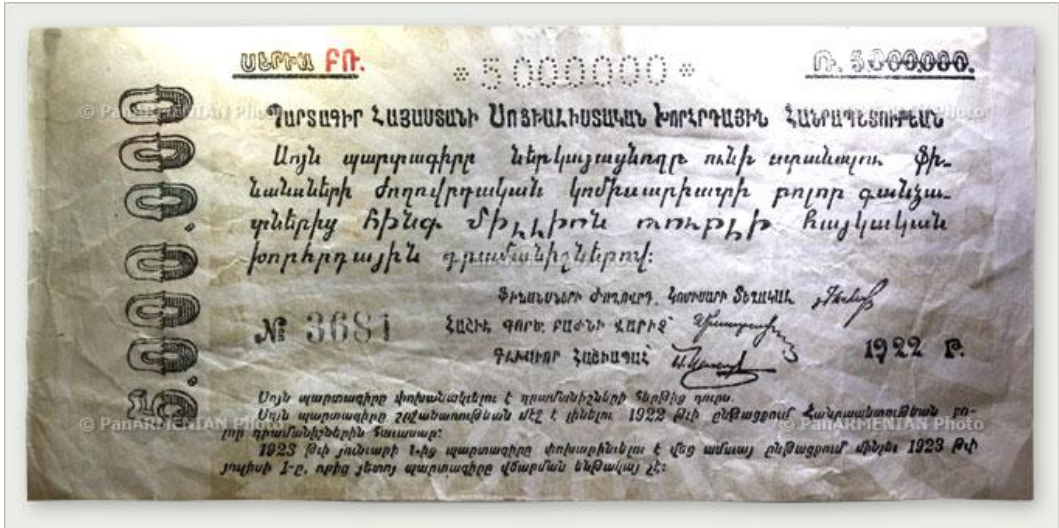 ՍԵՐԻԱ ԲՌ.
* 5 000000 *
Ռ. 5.000.000.
© PanARMENIAN Photo
© PanARMENIAN Photo
5.000.000
ՊԱՐՏԱԳԻՐ ՀԱՅԱՍՏԱՆԻ ՍՈՑԻԱԼԻՍՏԱԿԱՆ ԽՈՐՀՐԴԱՅԻՆ ՀԱՆՐԱՊԵՏՈՒԹԵԱՆ
Սոյն պարտագիրը ներկայացնողը ունի ստանալու ֆի-
նանսների ժողովրդական կոմիսարիատի բոլոր գանձա-
տներից հինգ միլլիոն ռուբլի հայկական
խորհրդային դրամանիշներով:
ՖԻՆԱՆՍՆԵՐԻ ԺՈՂՈՎՐԴ. ԿՈՄԻՍԱՐԻ ՏԵՂԱԿԱԼ
№ 3681
ՀԱՇԻՒ. ԳՈՐԾ. ԲԱԺՆԻ ՎԱՐԻՉ՝
ԳԼԽԱՒՈՐ ՀԱՇԻԱՊԱՀ՝
1922 Թ.
Սոյն պարտագիրը փոխանակելու է դրամանիշների հերթից դուրս.
Սոյն պարտագիրը շրջանառութեան մէջ է լինելու 1922 թւի ընթացքում Հանրապետութեան բո-
լոր դրամանիշներին հաւասար:
1923 թւի յունւարի 1-ից պարտագիրը փոխարինելու է վեց ամսւայ ընթացքում մինչեւ 1923 թւի
յուլիսի 1-ը, որից յետոյ պարտագիրը վճարման ենթակայ չէ:
© PanARMENIAN Photo
© PanARMENIAN Photo